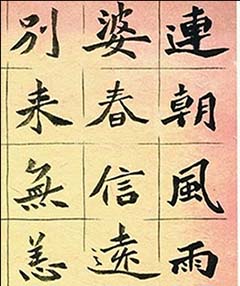 連朝風雨
婆春信遠
別来無恙